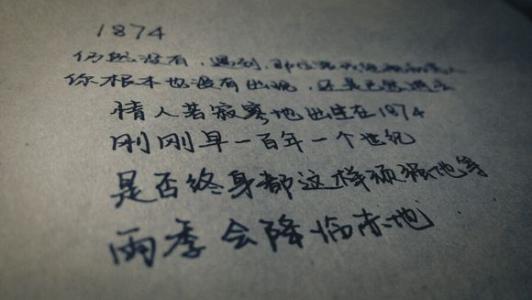 1874
仍然没有,遇到,那位
你根本也没有出现,还是已然逝去
情人若寂寥地出生在1874
刚刚早一百年一个世纪
是否终身都这样顽强地等
雨季会降临赤地